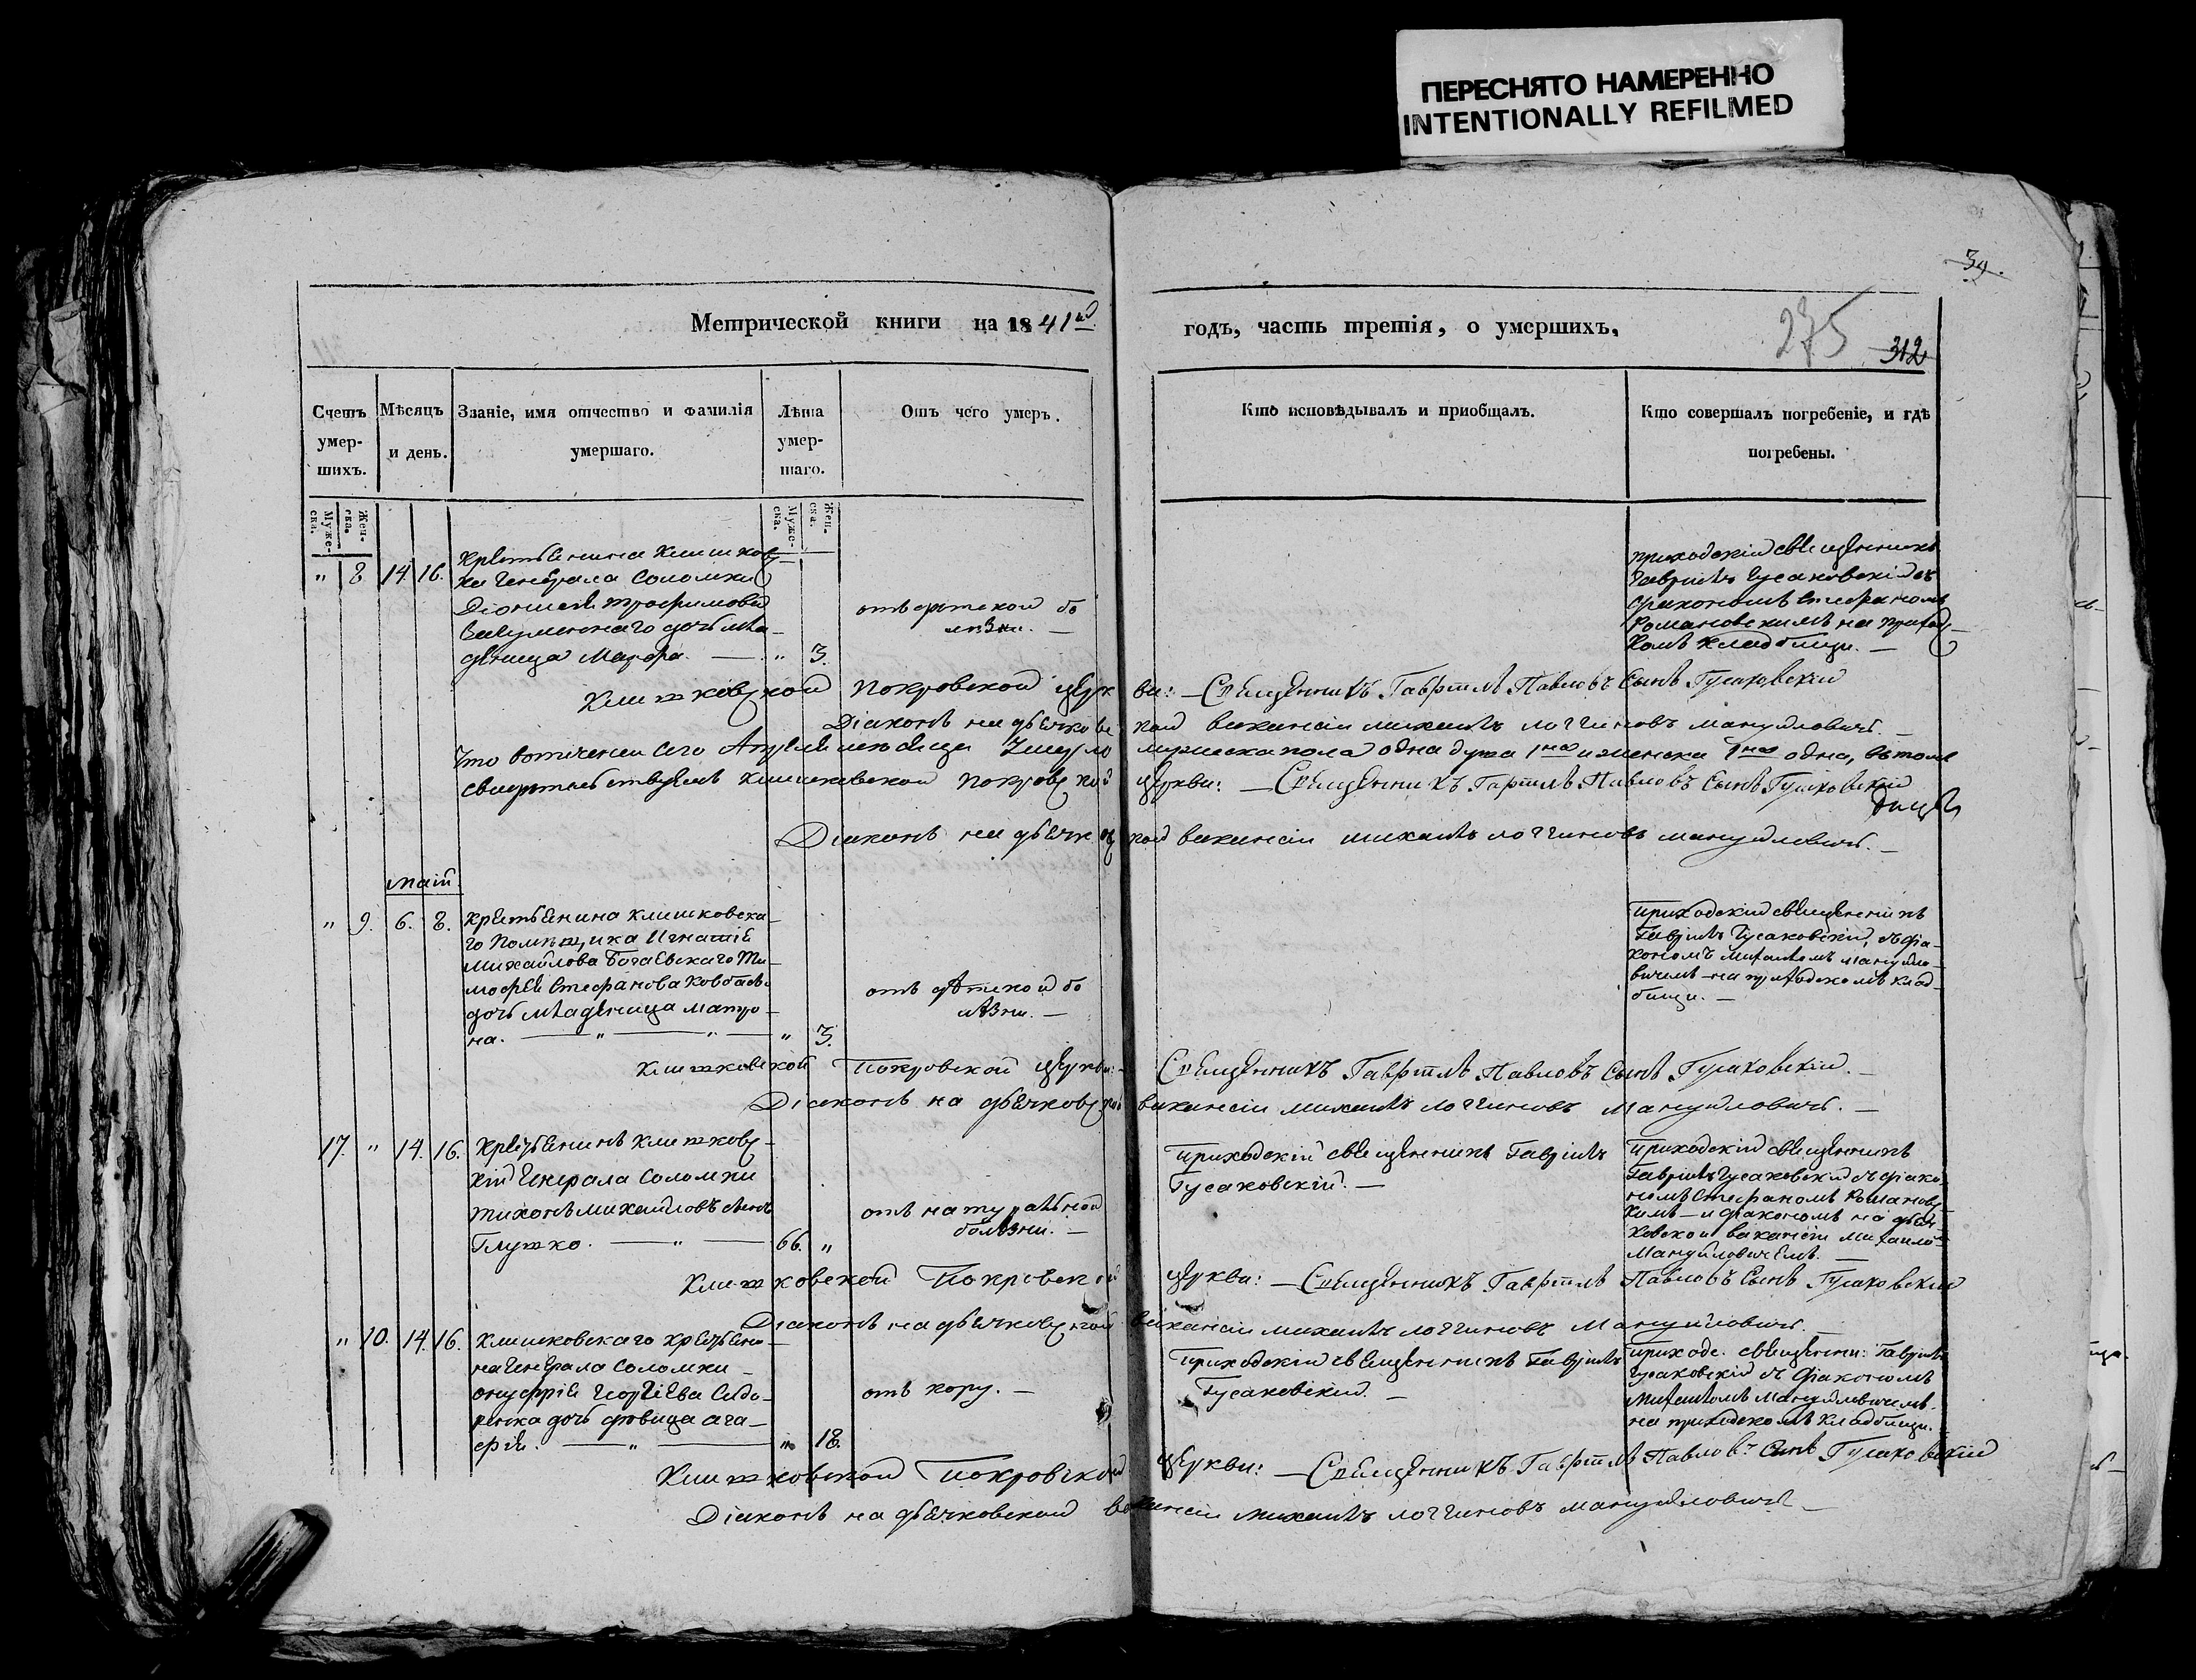 ПЕРЕСНЯТО НАМЕРЕННО
INTENTIONALLY REFILMED
39.
Метрической книги на 1841й
годъ, часть третія, о умершихъ,
275
312
Счетъ умер-шихъ.
Мѣсяцъ и день.
Званіе, имя отчество и фамилія умершаго.
Лѣта умер-шаго.
Отъ чего умеръ.
Кто исповѣдывалъ и приобщалъ.
Кто совершалъ погребеніе, и гдѣ погребены.
Муже-ска.
Жен-ска.
Муже-ска.
Жен-ска.
" 8 14. 16.
Крестьянина Клишковс
ка Генерала Соломки
Діонисія Трофимова
дочь мла-
деница Марфа. — " 3.
отъ дѣтской бо
лѣзни. —
приходскій священникъ
Гавріилъ Гусаковскій съ
діакономъ Стефаномъ
Романовскимъ на приход
комъ кладбищи. —
Клишковской Покровской церк
ви: — Священникъ Гавріилъ Павловъ Сынъ Гусаковскій
Діаконъ на дьячковс
кой вакансіи михаилъ логгиновъ мануйловичъ. —
Что вотечении сего Апреля месяца Умерло
мужеска пола одна душа 1на и женска 1на одна, вътомъ
свидетельствуемъ клишковской покровской
церкви: — Священникъ Гавріилъ Павловъ Сынъ Гусаковскій
Діаконъ на дьячковс
кой вакансіи михаилъ логгиновъ мануйловичъ. —
маій
" 9. 6. 8.
крестьянина клишковска
го помѣщика Игнатія
Михайлова Богаевскаго Ти-
мофея Стефанова Ковбасы
дочь младеница матро-
на. — " — " — " 3.
отъ дѣтской бо
лѣзни. —
приходскій священникъ
Гавріилъ Гусаковскій, съ діа-
кономъ Михаиломъ мануйло-
вичемъ на приходскомъ клад-
бищи. —
Клишковской Покровской церкви: —
Священникъ Гавріилъ Павловъ Сынъ Гусаковскій. —
Діаконъ на дьячковской
вакансіи михаилъ логгиновъ мануйловичъ. —
17. " 14. 16.
Крестьянинъ клишковс-
кій Генерала Соломки
тихонъ михайловъ сынъ
Глушко. — " — 66. "
отъ натуральной
болѣзни. —
приходскій священникъ Гавріилъ
Гусаковскій. —
приходскій священникъ
Гавріилъ Гусаковскій съ діако
номъ Стефаномъ Романовс
кимъ — и діакономъ на дьяч
ковской вакансіи Михаило
Мануйловичемъ. —
Клишковской Покровской
церкви: — Священникъ Гавріилъ Павловъ Сынъ Гусаковскій
Діаконъ на дьячковской
вакансіи михаилъ логгиновъ Мануйловичъ. —
" 10. 14. 16.
Клишковскаго крестьяни-
на Генерала Соломки —
онуфрія Георгіева Сидо-
ренка дочь дѣвица ага-
фія. — " — " 18.
отъ кору. —
приходскій священникъ Гавріилъ
Гусаковскій. —
приходс. священни: Гавріилъ
Гусаковскій съ діакономъ
Михаиломъ Мануйловичемъ.
на приходскомъ кладбищи.
Клишковской Покровской
церкви: — Священникъ Гавріилъ Павловъ Сынъ Гусаковскій
Діаконъ на дьячковской ва
кансіи михаилъ логгиновъ мануйловичъ —